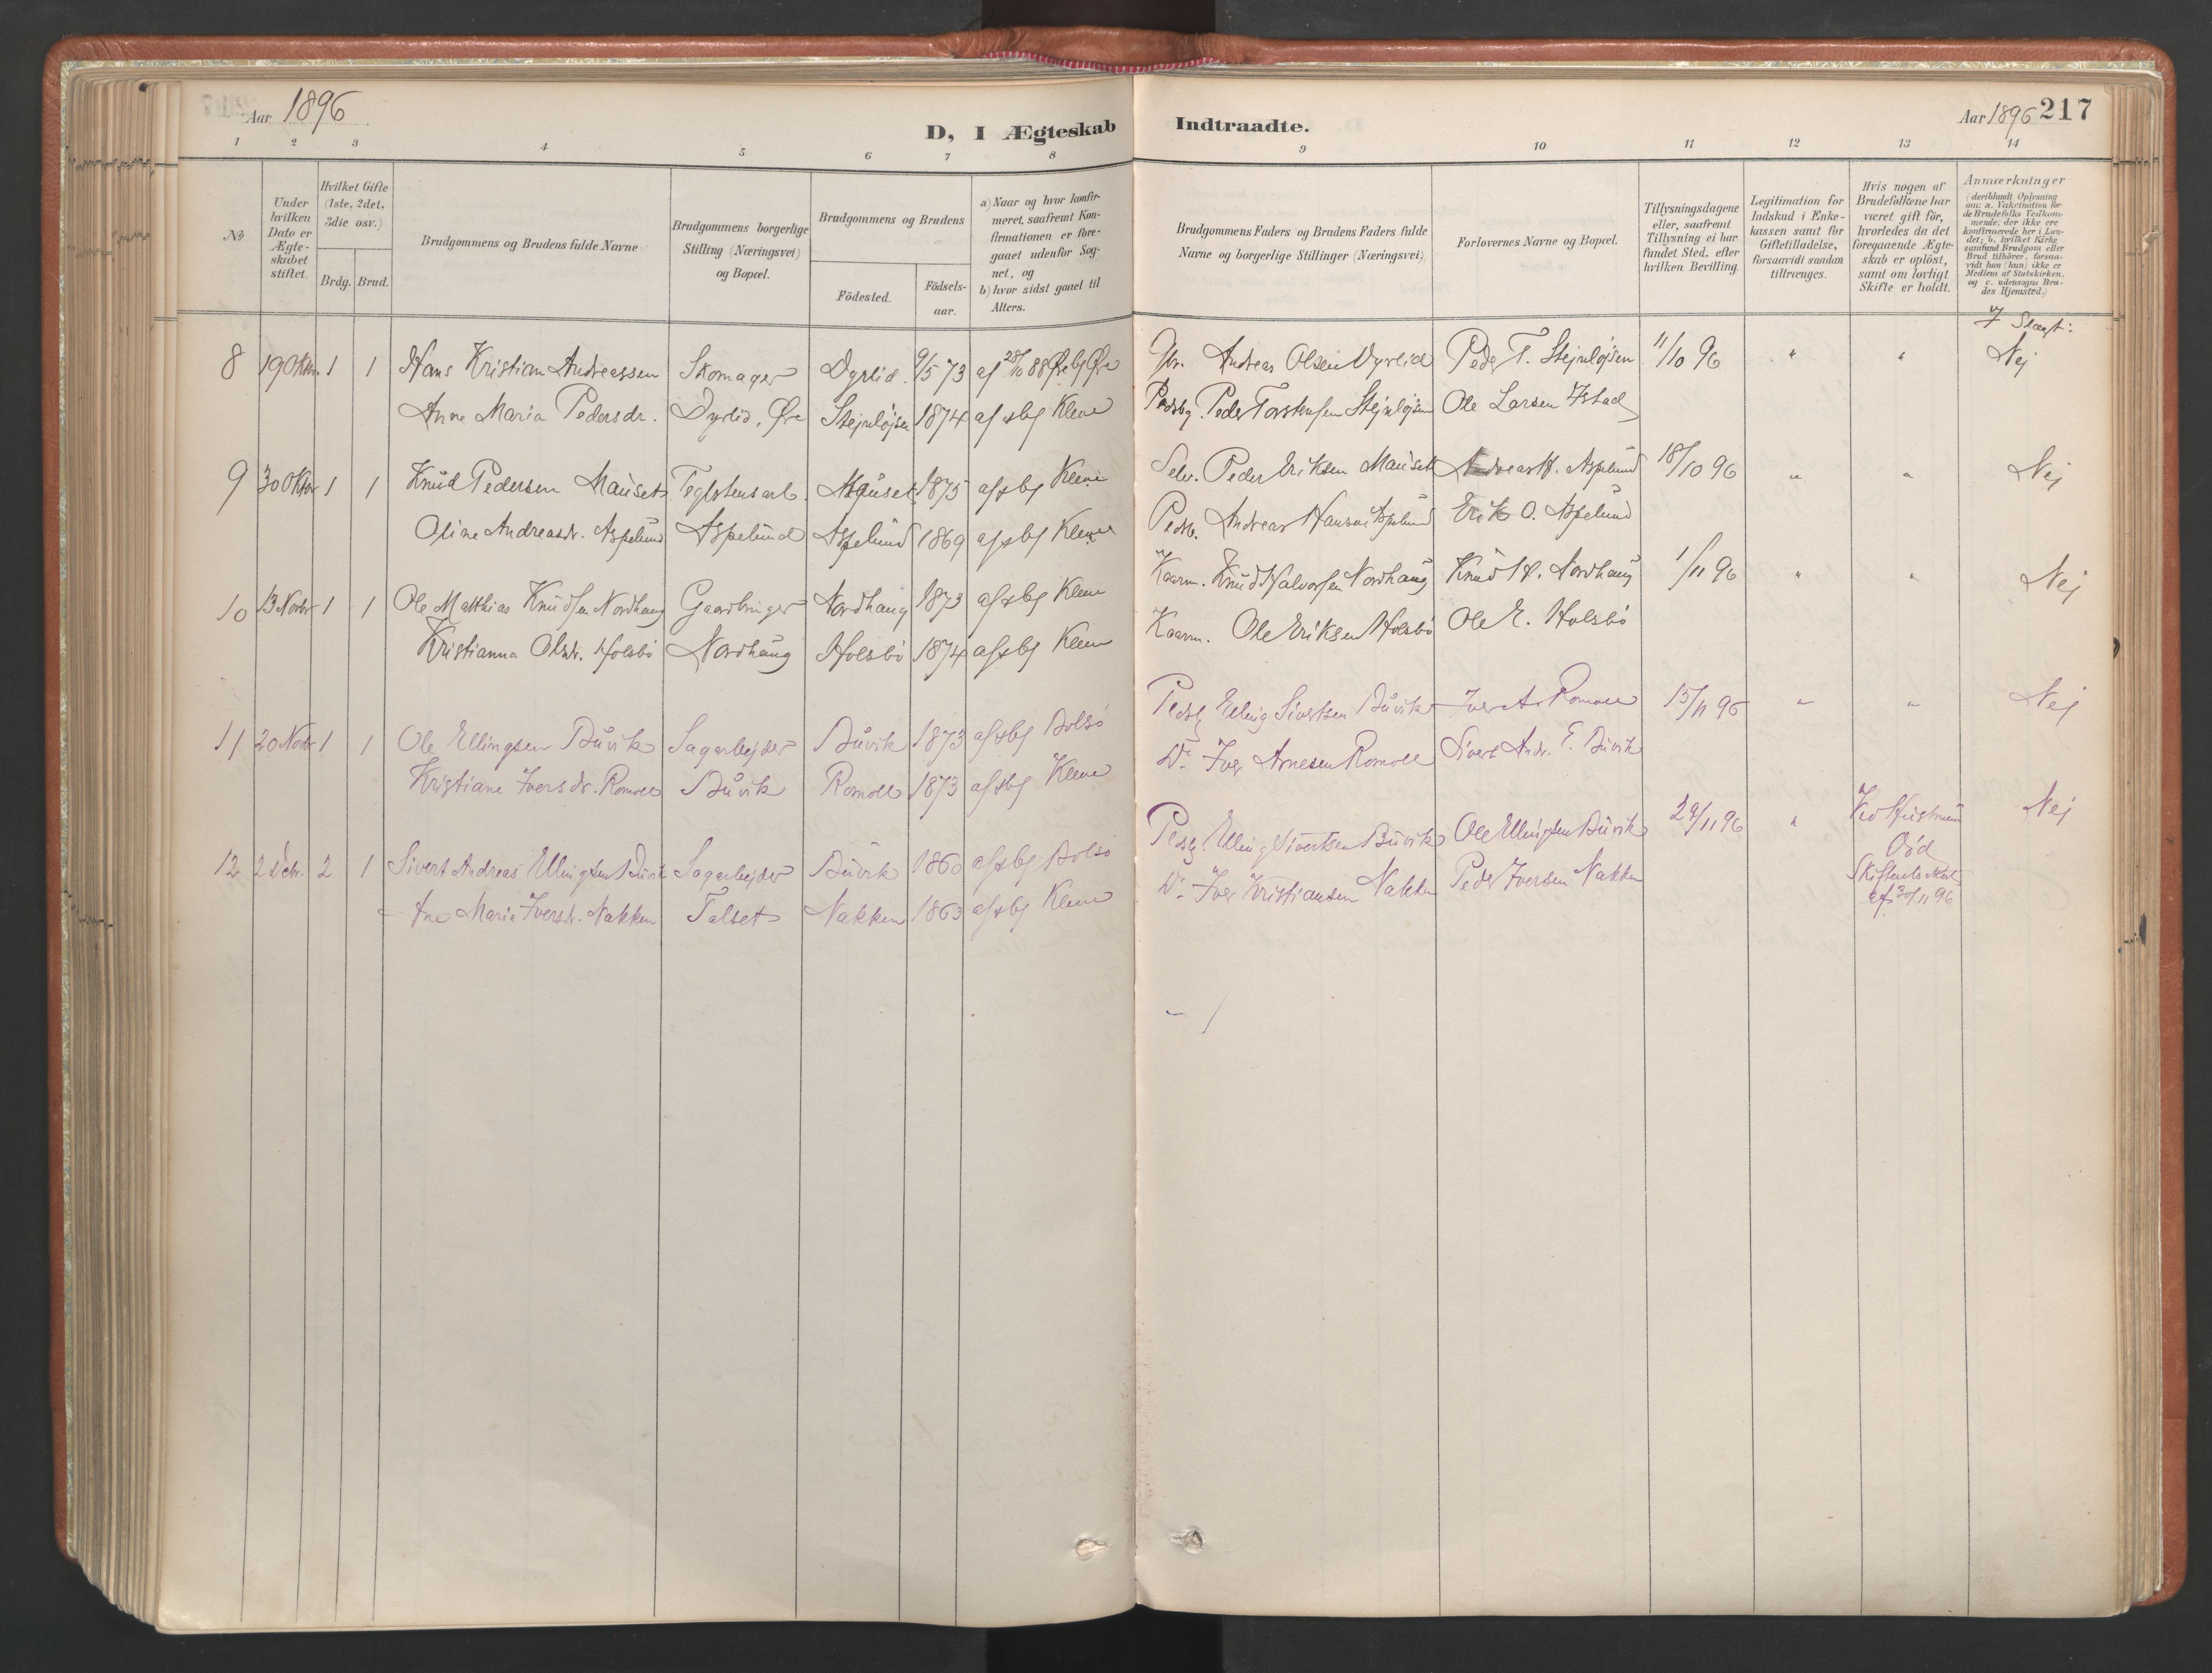 Aar 1896
D, I Ægteskab Indtraadte.
Aar 1896 217
1 2 3 4 5 6 7 8 9 10 11 12 13 14
No
Under hvilken Dato er Ægteskabet stiftet.
Hvilket Gifte (1ste, 2det, 3die osv.)
Brdg. Brud.
Brudgommens og Brudens fulde Navne
Brudgommens borgerlige Stilling (Næringsvei) og Bopæl.
Brudgommens og Brudens
Födested.
Födsels-aar.
a) Naar og hvor konfir-
meret, saafremt Kon-
firmationen er fore-
gaaet udenfor Sog-
net, og
b) hvor sidst gaaet til
Alters.
Brudgommens Faders og Brudens Faders fulde
Navne og borgerlige Stillinger (Næringsvei)
Forlovernes Navne og Bopæl.
Tillysningsdagene
eller, saafremt
Tillysning ei har
fundet Sted, efter
hvilken Bevilling.
Legitimation for
Indskud i Enke-
kassen samt for
Giftetilladelse,
forsaavidt saadan
tiltrænges.
Hvis nogen af
Brudefolkene har
været gift för,
hvorledes da det
foregaaende Ægte-
skab er oplöst,
samt om lovligt
Skifte er holdt.
Anmærkninger
(deriblandt Oplysning
om: a. Vakcination for
de Brudefolks Vedkom-
mende, der ikke ere
konfirmerede her i Lan-
det; b. hvilket Kirke-
samfund Brudgom eller
Brud tilhører, forsaa-
vidt han (hun) ikke er
Medlem af Statskirken,
og c. udensogns Bru-
des Hjemsted.)
I Slægt:
8 19 Oktbr. 1 1 Hans Kristian Andreassen Skomager Dyrlid 9/5 73 af 28/10 88 Øre bg Øre Andreas Olsen Dyrlid Peder T. Stejnløjsen 11/10 96 " " Nej
Anne Maria Pedersdr. Dyrlid, Øre Stejnløjsen 1874 afsbg Kleve Peder Torstensen Stejnløjsen Ole Larsen Istad
9 30 Oktbr 1 1 Knud Pedersen Mauset Teglstensarb. Mauset 1875 afsbg Kleve Selv. Peder Eriksen Mauset Andreas H. Aspelund 18/10 96 " " Nej
Oline Andreasdr. Aspelund Aspelund Aspelund 1869 afsbg Kleve Andreas Hansen Aspelund Erik O. Aspelund
10 13 Novbr 1 1 Ole Matthias Knudsen Nordhaug Gaardbruger Nordhaug 1873 afsbg Kleve Kaarm. Knud Halvorsen Nordhaug Knud H. Nordhaug 1/11 96 " " Nej
Kristianna Olsdr. Holsbö Nordhaug Holsbö 1874 afsbg Kleve Kaarm. Ole Eriksen Holsbö Ole E. Holsbö
11 20 Novbr 1 1 Ole Ellingsen Buvik Sagarbejder Buvik 1873 afsbg Bolsö Elling Sivertsen Buvik Iver A. Romoll 15/11 96 " " Nej
Kristiane Iversdr. Romoll Buvik Romoll 1873 afsbg Kleve Do. Iver Arnesen Romoll Sivert Andr. E. Buvik
12 2 Debr. 2 1 Sivert Andreas Ellingsen Buvik Sagarbejder Buvik 1860 afsbg Bolsö Elling Sivertsen Buvik Ole Ellingsen Buvik 29/11 96 " Ved Hustruens Nej
Ane Marie Iversdr. Nakken Talset Nakken 1863 afsbg Kleve Do. Iver Kristiansen Nakken Peder Iversen Nakken Död
af 30/11 96